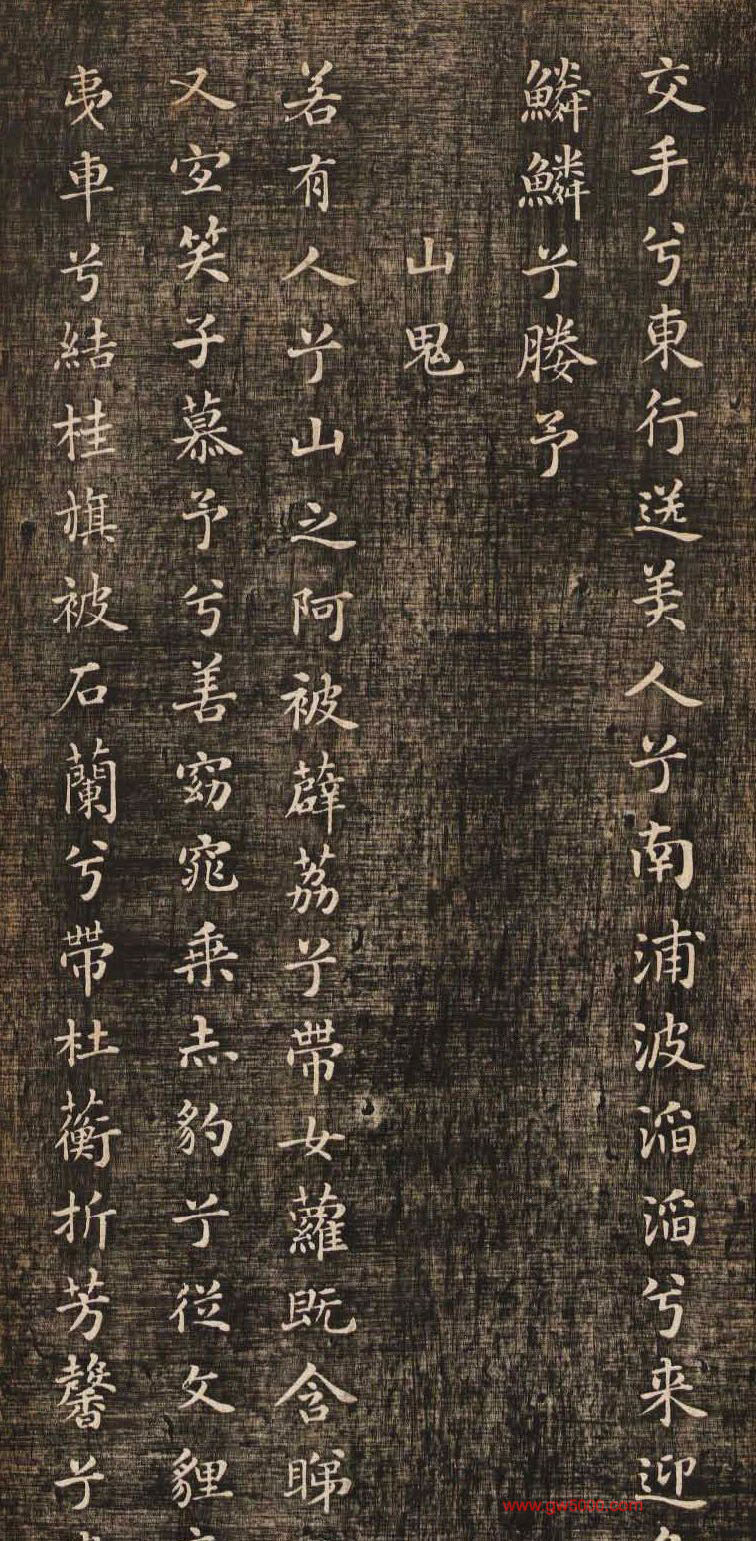 交手兮東行送美人兮南浦波滔滔兮来迎
鱗鱗兮媵予
山鬼
若有人兮山之阿被薜荔兮带女蘿既含睇
又宜笑子慕予兮善窈窕乗赤豹兮従文貍
車兮結桂旗被石蘭兮带杜蘅折芳馨兮
www.gw8000.com